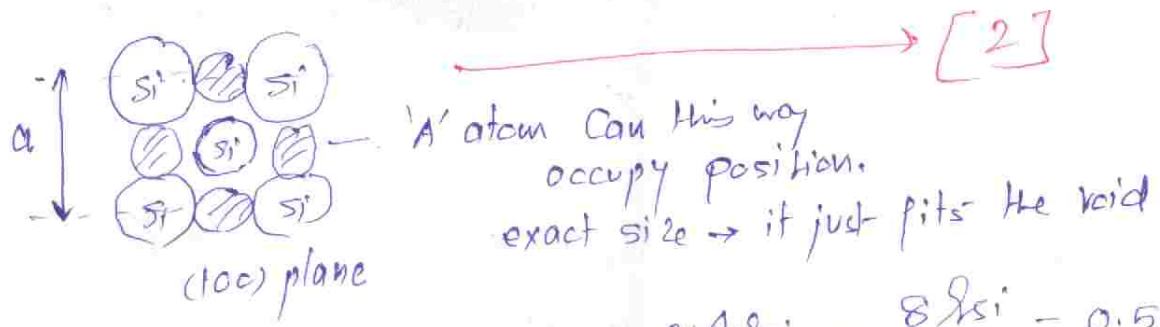 [2]
Si Si
a
Si
Si Si
(100) plane
'A' atom Can this way
occupy position.
exact size → it just fits the void
8 rsi = 0.5